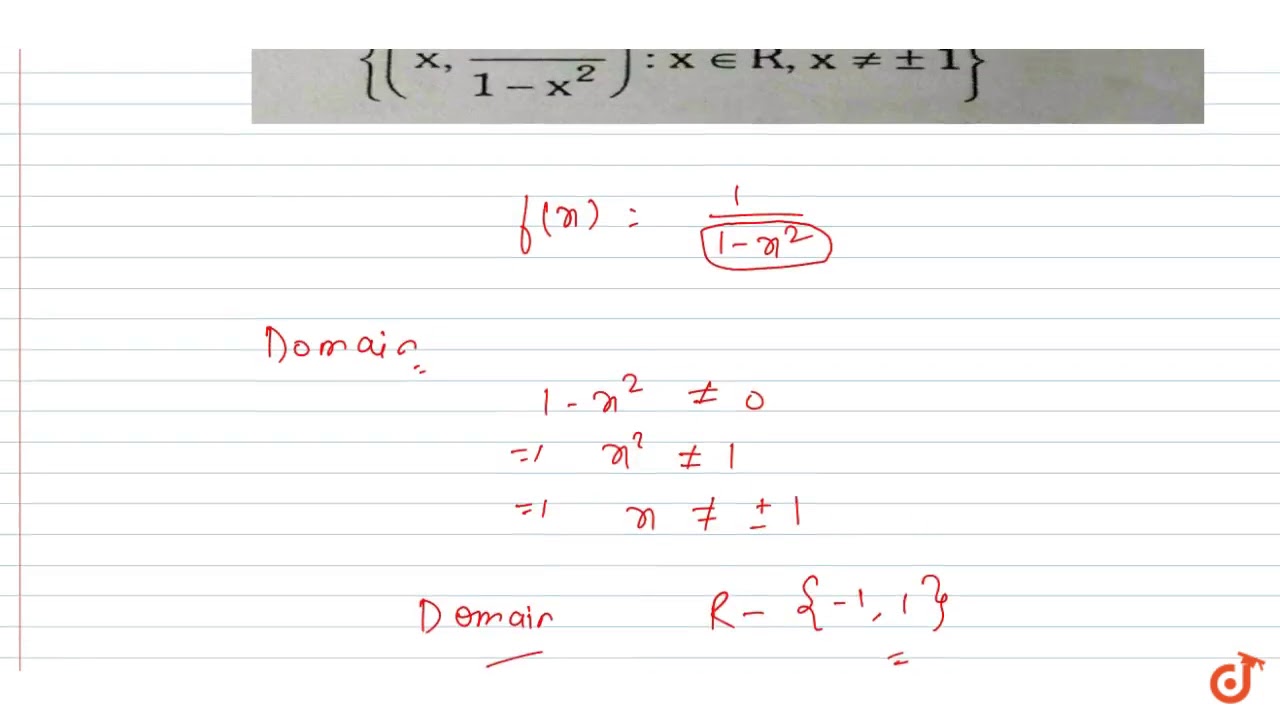 {(x, ‾/1 – x²) : x ∈ R, x ≠ ± 1}
f(x) = 1/(1 - x²)
Domain
1 - x² ≠ 0
=> x² ≠ 1
=> x ≠ ± 1
Domain R - {-1, 1}